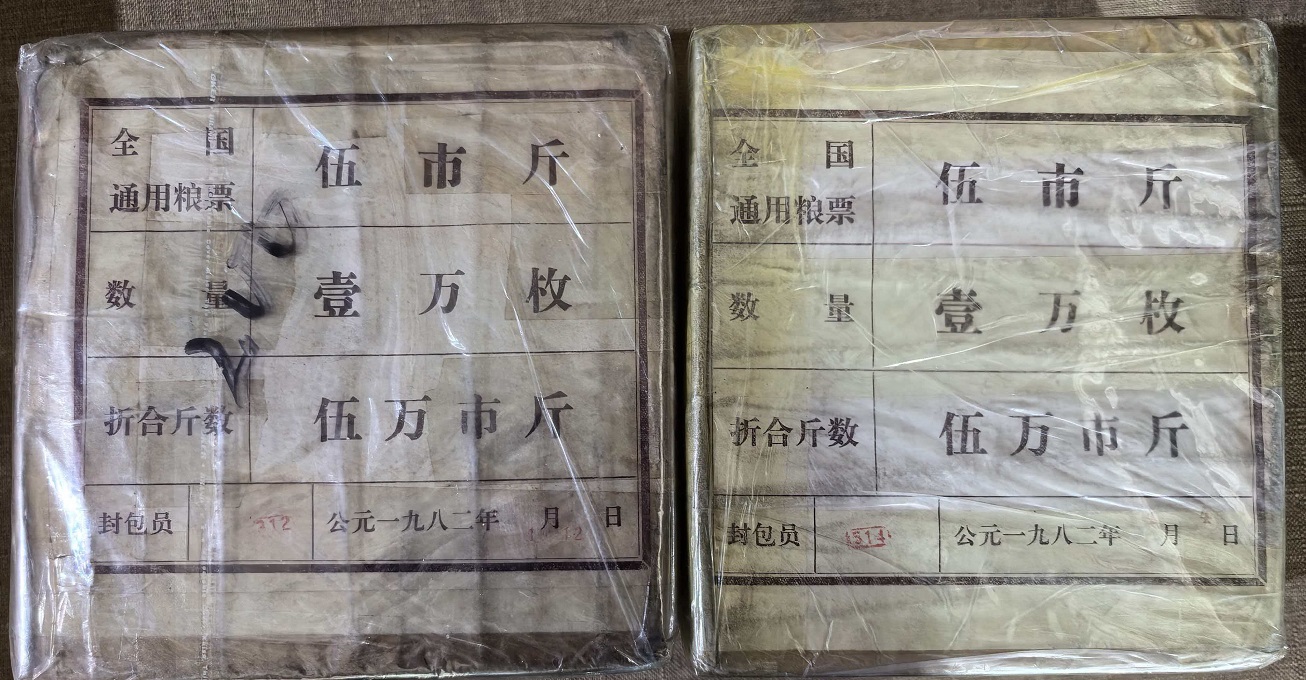 全国
通用粮票
伍市斤
数量
壹万枚
折合斤数
伍万市斤
封包员
312
公元一九八二年 月 日
12
全国
通用粮票
伍市斤
数量
壹万枚
折合斤数
伍万市斤
封包员
314
公元一九八二年 月 日